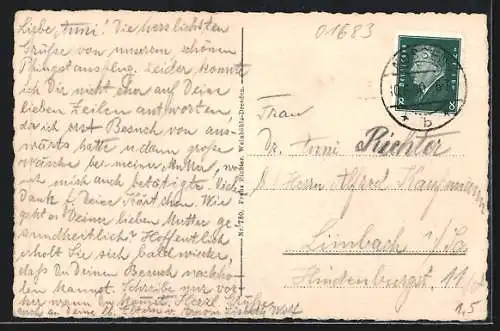 01683
Liebe Anni! Die herzlichsten
Grüße von unserem schönen
Pfingstausflug. Leider konnte
ich Dir nicht eher auf Deine
lieben Zeilen antworten,
da ich erst Besuch von aus-
wärts hatte u. dann große
Wäsche bei meiner Mutter, wo
ich mich auch betätigte. Viel
Dank f. Deine Kärtchen. Wie
geht es Deiner lieben Mutter ge-
sundheitlich? Hoffentlich
erholt Sie sich bald wieder,
daß Du Deinen Besuch nachho-
len kannst. Schreibe nur vor-
her wann Du kommst. Herzl. Grüße
auch an Deine
Nr. 760. Franz Huber, Weinböhla-Dresden.
DEUTSCHES REICH
8 8
* b
Frau
Dr. Anni Richter
b/ Herrn Alfred Kaufmann
Limbach i/Sa
Hindenburgst. 11
1,5